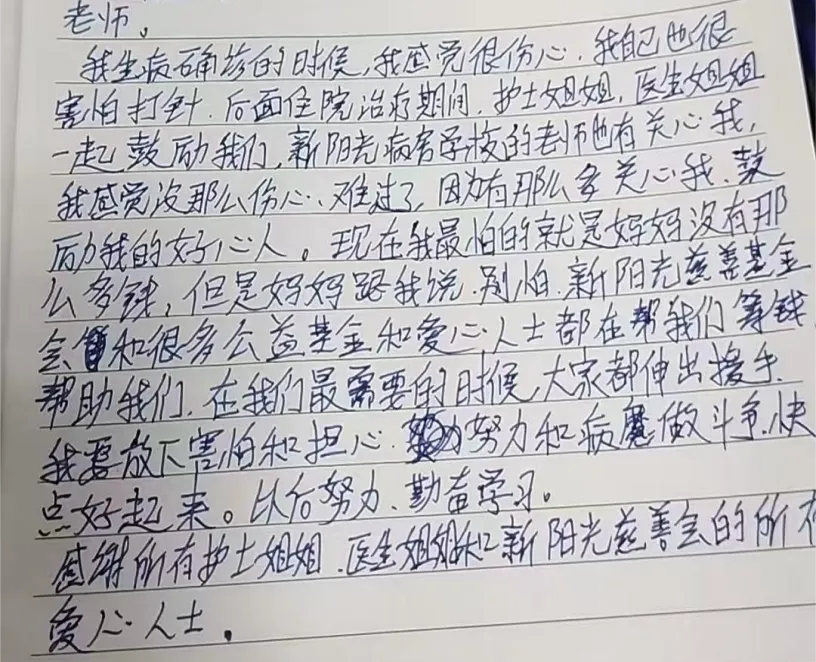 老师。
我生病确诊的时候,我感觉很伤心,我自己也很
害怕打针.后面住院治疗期间.护士姐姐,医生姐姐
一起鼓励我们,新阳光病房学校的老师也有关心我,
我感觉没那么伤心、难过了,因为有那么多关心我、鼓
励我的好心人。现在我最怕的就是妈妈没有那
么多钱,但是妈妈跟我说.别怕.新阳光慈善基金
会和很多公益基金和爱心人士都在帮我们筹钱.
帮助我们.在我们最需要的时候,大家都伸出援手.
我要放下害怕和担心.努力和病魔做斗争.快
点好起来。以后努力、勤奋学习。
感谢所有护士姐姐.医生姐姐和新阳光慈善会的所有
爱心人士.